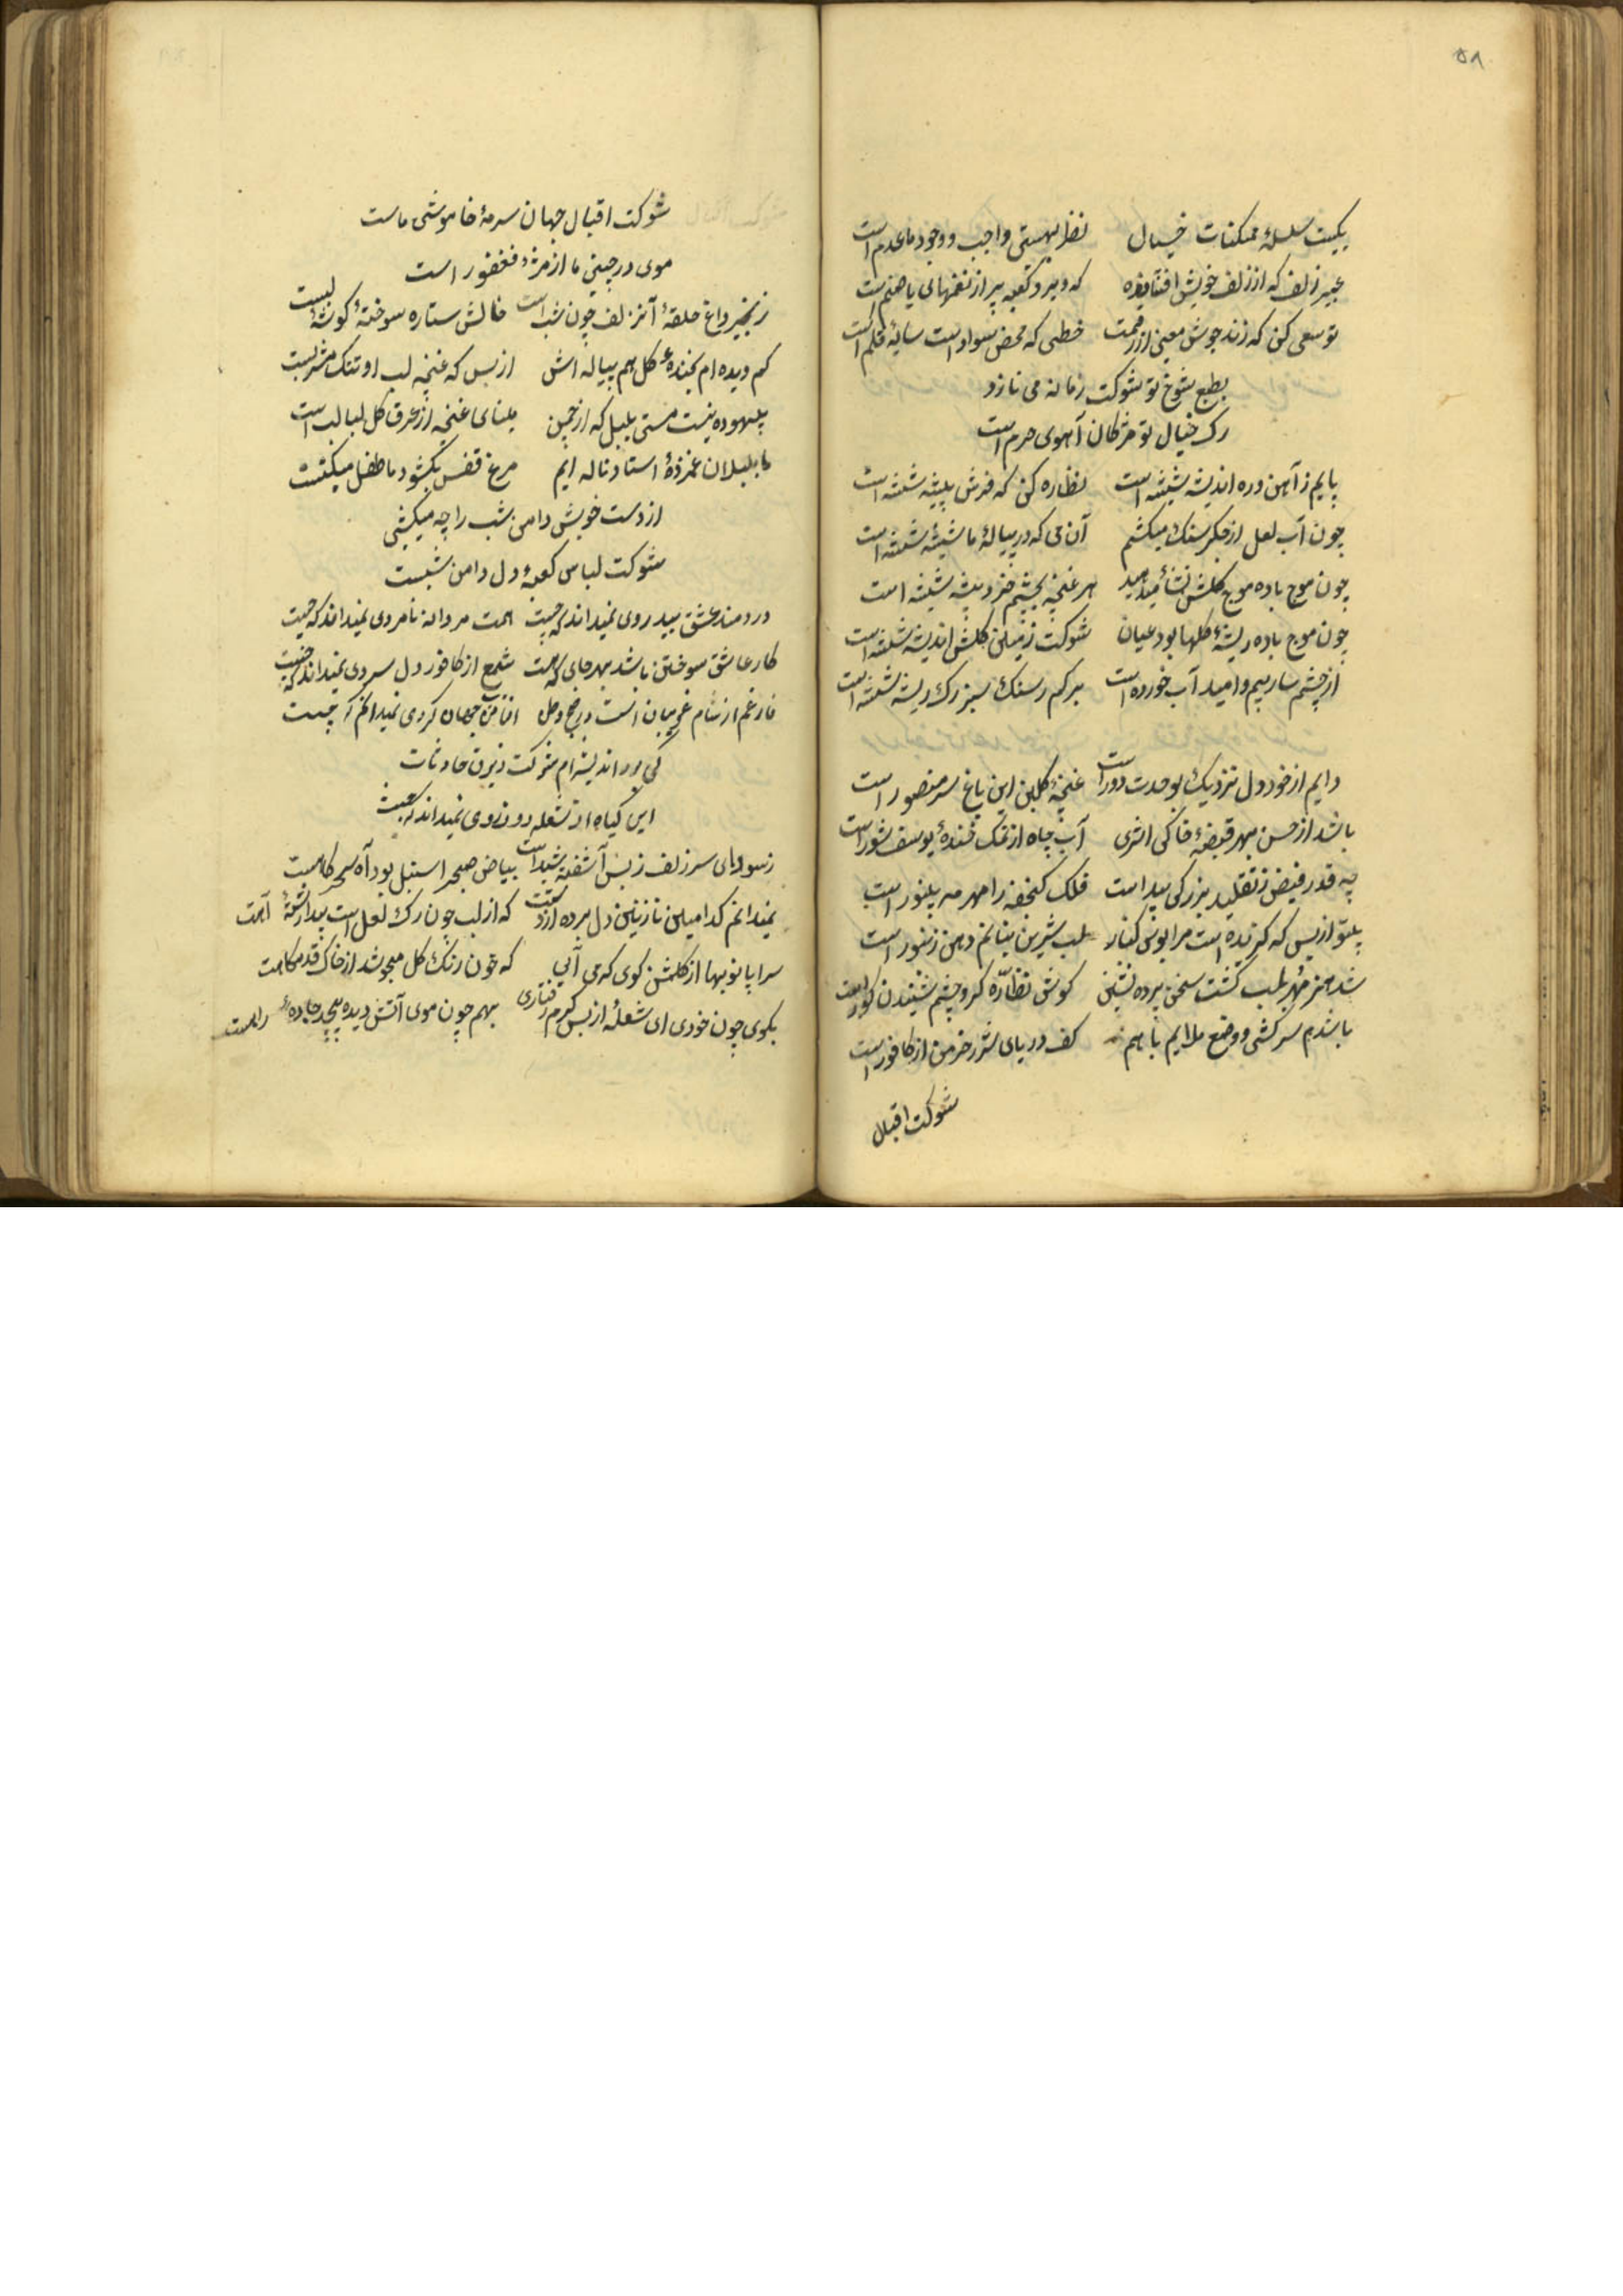 ۵۸
یکیست سلسلهٔ ممکنات خیال نظر بهستی واجب وجود ما عدم است
عبیر زلف که از زلف خویش افشانده که دیر و کعبه پر از نغمهای یا صنم است
تو سعی کن که زند جوش معنی از رقمت خطی که محض سواد است سایهٔ قلم است
بطبع شوخ تو شوکت زمانه می نازد
رک خیال تو مژکان آهوی حرم است
پایم ز آهن و ره اندیشه شیشه است نظاره کن که فرش بیشه شیشه است
چون آب لعل از جکر سنک میکشم آن می که در پیالهٔ ما شیشه شیشه است
چون موج باده موج کلش نشأ میدهد هر غنچه بچشم خرد شیشه شیشه است
چون موج باده ریشهٔ کلها بود عیان شوکت زمین کلشن اندیشه شیشه است
از چشمه سار بیم و امید آب خورده است برکم ز سنک سبز رک ریشه شیشه است
دایم از خود دل نزدیک بوحدت دور است غنچهٔ کلبن این باغ سر منصور است
باشد از حسن بهر قبضهٔ خاکی اثری آب چاه از نمک خندهٔ یوسف شور است
چه قدر فیض ز تقلید بزرکی پیداست فلک کنجفه را مهر و مه بی نور است
بی تو از بس که کزیده است مرا بوس کنار لب شیرین بتانم دهن زنبور است
شد هنر مهر بلب کشت سخن پرده نشین کوش نظاره کر و چشم شنیدن کور است
باشدم سرکشی و وضع ملایم با هم کف دریای شرر خرمن از کافور است
شوکت اقبال
شوکت اقبال جهان سرمهٔ خاموشی ماست
موی در چینی ما از مژهٔ فغفور است
زنجیر داغ حلقهٔ آن زلف چون شب است خالش ستاره سوختهٔ کوشهٔ لبست
کم دیده ام بخندهٔ کل هم پیاله اش از بس که غنچه لب او تنک مشربست
بیهوده نیست مستی بلبل که از چمن مینای غنچه از عرق کل لبالب است
ما بلبلان غمزدهٔ استاد ناله ایم مرغ قفس بکشود ما طفل مکتبست
از دست خویش دامن شب را چه میکشی
شوکت لباس کعبهٔ دل دامن شبست
دردمند عشق بیدردی نمیداند که چیست همت مردانه نامردی نمیداند که چیست
کار عاشق سوختن باشد بهر جایی که هست شمع از کافور دل سردی نمیداند که چیست
فارغم از شام غریبان است در صبح وطن آفتاب من جهان کردی نمیداند که چیست
کی بود اندیشه ام شوکت ز برق حادثات
این کیاه از شعله رو زردی نمیداند که چیست
ز سودای سر زلف ز بس آشفته شیداست بیاض صبح را سنبل بود آه سحرکاهت
نمیدانم کدامین نازنین دل برده از دستت که از لب چون رک لعل است پیدا رشتهٔ آهت
سراپا نوبهار از کلشن کوی که می آیی که خون رنک کل میجوشد از خاک قدمکاهت
بکوی چون خودی ای شعلهٔ از بس کرم رفتاری بهم چون موی آتش دیده پیچد جادهٔ راهت